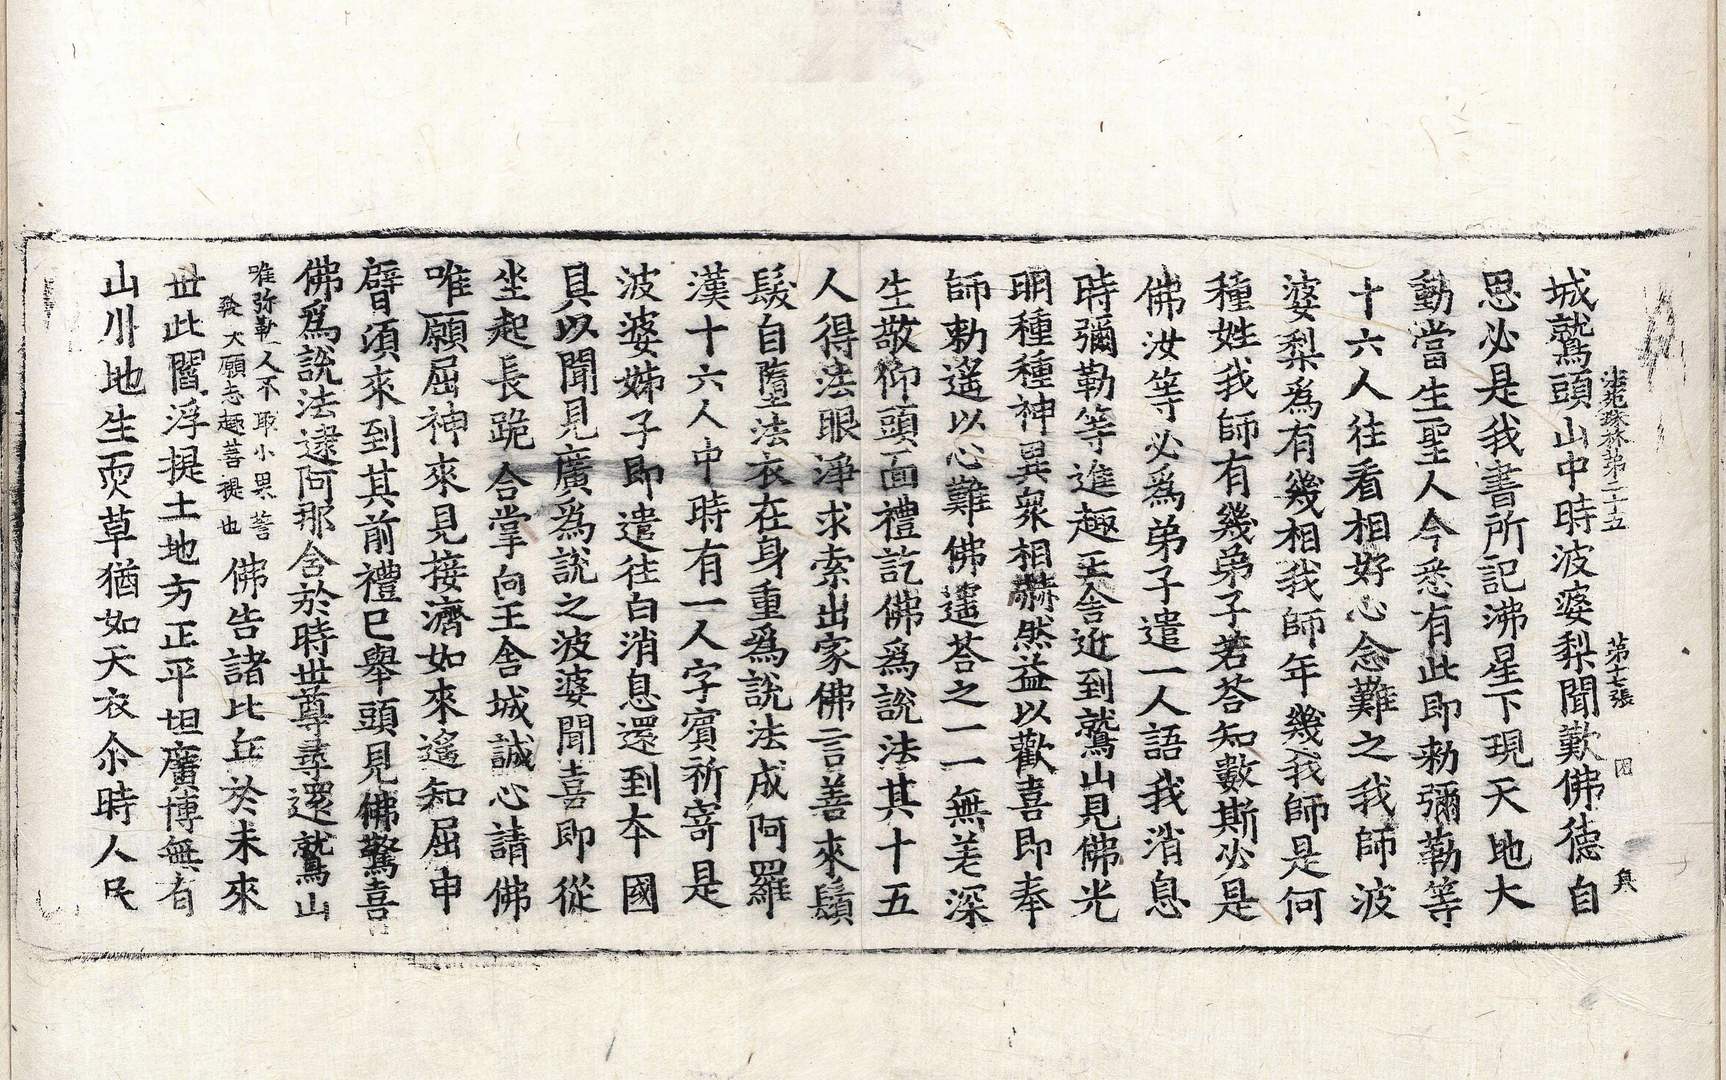 法苑珠林第二十五 第十七張 因 兵
城鷲頭山中時波婆梨聞歎佛德自
思必是我書所記沸星下現天地大
動當生聖人今悉有此即勑彌勒等
十六人往看相好心念難之我師波
婆梨為有幾相我師年幾我師是何
種姓我師有幾弟子若荅知數斯必是
佛汝等必為弟子遣一人語我消息
時彌勒等進趣王舍近到鷲山見佛光
明種種神異衆相赫然益以歡喜即奉
師勑遙以心難佛遙荅之一一無差深
生敬仰頭面禮訖佛爲說法其十五
人得法眼淨求索出家佛言善來鬚
髮自墮法衣在身重爲說法成阿羅
漢十六人中時有一人字賓祈寄是
波婆姊子即遣往白消息還到本國
具以聞見廣為說之波婆聞喜即從
坐起長跪合掌向王舍城誠心請佛
唯願屈神來見接濟如來遙知屈申
臂頃來到其前禮已舉頭見佛驚喜
佛爲說法逮阿那含於時世尊尋還鷲山
唯弥勒一人不取小果誓
發大願志趣菩提也
佛告諸比丘於未來
世此閻浮提土地方正平坦廣博無有
山川地生耎草猶如天衣尒時人民